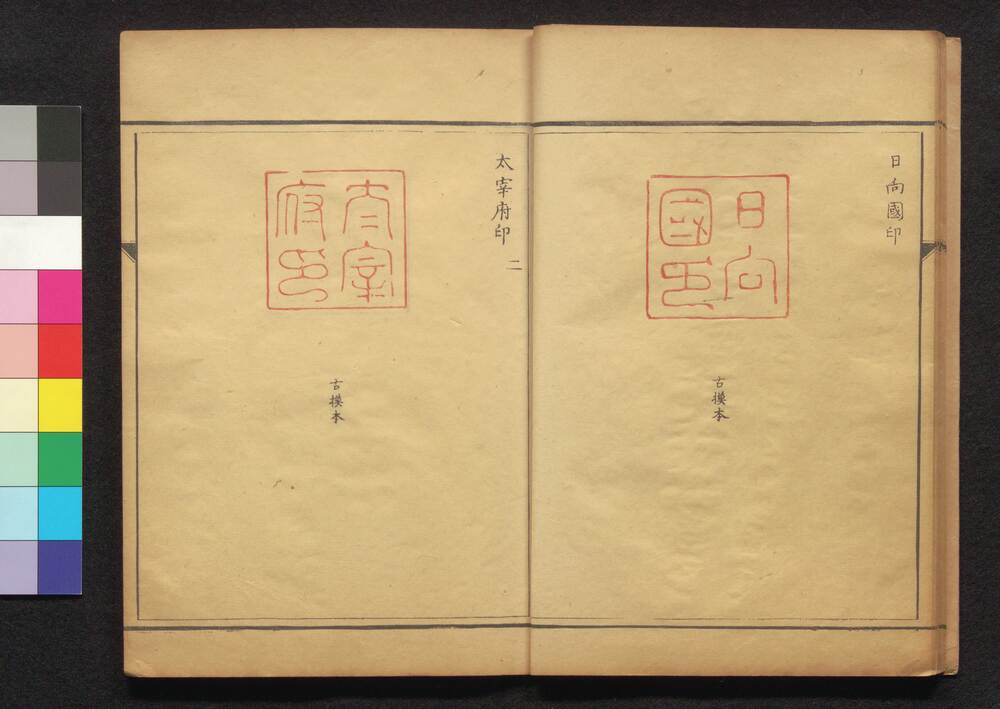 日向國印
日向
國印
古摸本
太宰府印
二
太宰
府印
古摸本